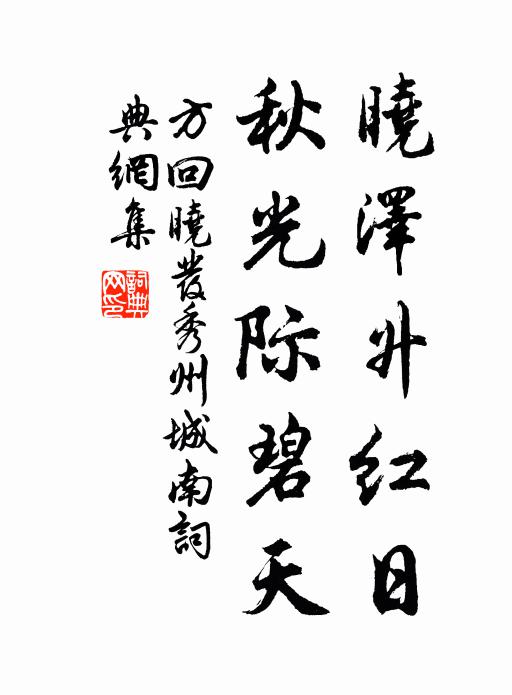 曉澤升紅日
秋光际碧天
方回曉發秀州城南詞
典網集
詞典网印